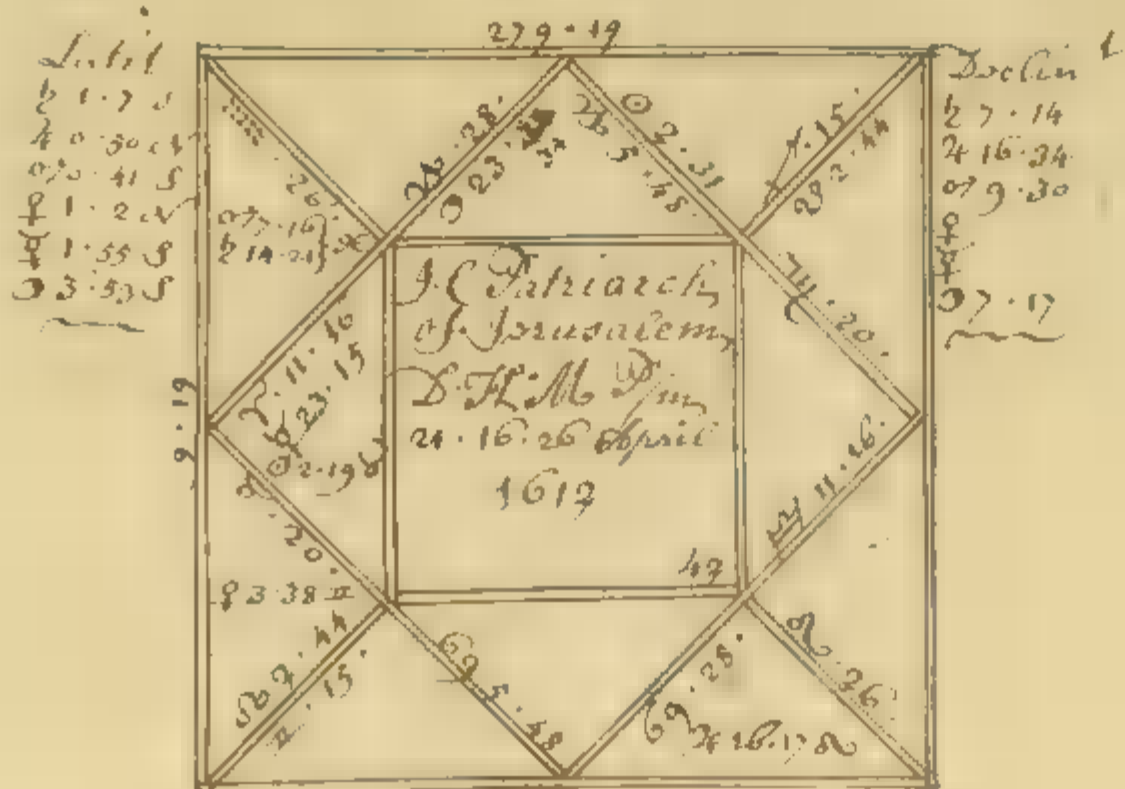 279 · 19
Latit
♄ 1 · 7 S
♃ 0 · 50 N
♂ 0 · 41 S
♀ 1 · 2 N
☿ 1 · 55 S
☽ 3 · 53 S
Declin
♄ 7 · 14
♃ 16 · 34
♂ 9 · 30
♀
☿
☽ 7 · 17
26
♑ 28
☽ 23
♑ 5 · 48
☉ 2 · 31
♐ 15
☋ 2 · 44
♏ 20
♂ 7 · 16
♄ 14 · 21 } ♓
9 · 19
♈ 11 · 16
☿ 23 · 15
☉ 2 · 19 ♉
J. C. Patriarch
of Jerusalem
D. H. M. P m
21 · 16 · 26 April
1617
47
♎ 11 · 16
♉ 20
♀ 3 · 38 ♊
☊ 2 · 44
♊ 15
♋ 5 · 48
♋ 28
♃ 26 · 17 ♌
♌ 26